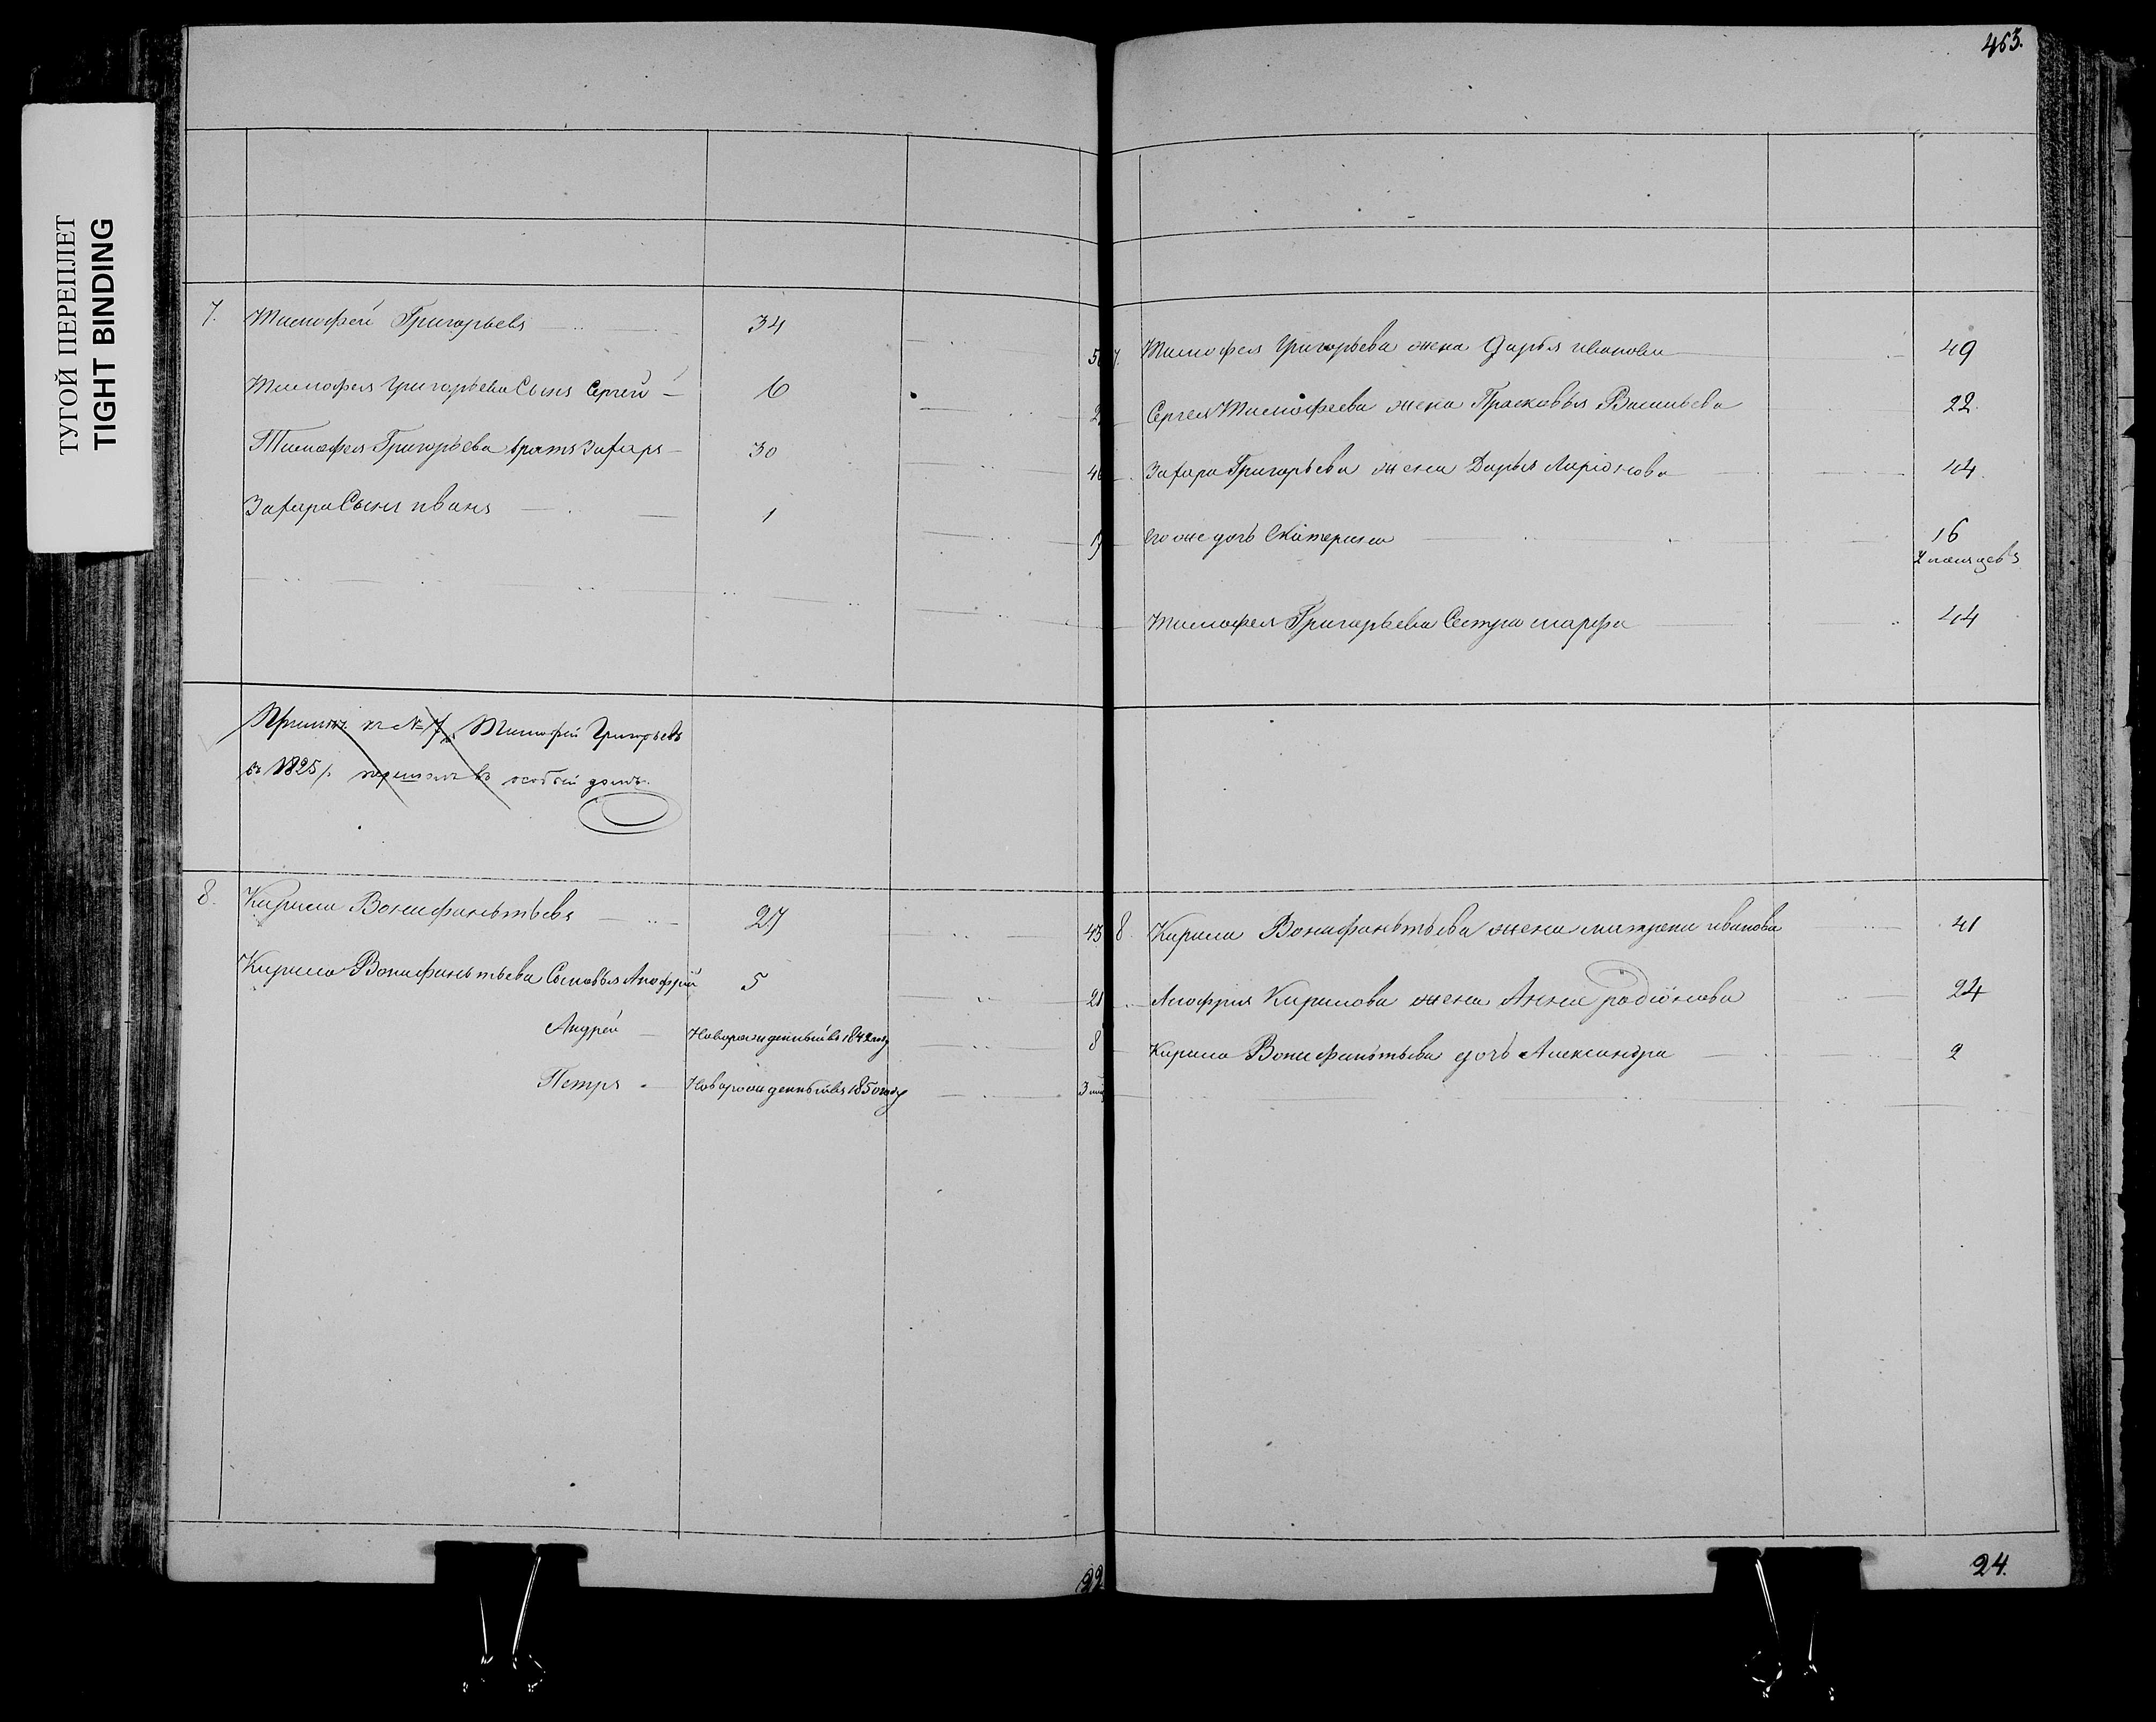 ТУГОЙ ПЕРЕПЛЕТ
TIGHT BINDING
7. Тимофей Григорьевъ 34
Тимофея Григорьева Сынъ Сергей 6
Тимофея Григорьева братъ Захаръ 30
Захара Сынъ иванъ 1
къ № 7, Тимофей Григорьевъ
въ 1825 г. перешелъ въ особый домъ.
8. Кирила Вонифаньтьевъ 27
Кирила Вонифаньтьева Сыновья Анофрій 5 21
Андрей Новорожденный въ 1842 году 8
Петръ Новорожденный въ 1850 году 3
22
453.
7. Тимофея Григорьева жена Дарья иванова 49
Сергея Тимофеева жена Прасковья Васильева 22.
Захара Григорьева жена Дарья Ларіонова 44.
Его же дочь Екатерина 16
месяцевъ
Тимофея Григорьева Сестра марфа 44
43 8. Кирила Вонифаньтьева жена матрена иванова 41
Анофрия Кирилова жена Анна радіонова 24
Кирила Вонифаньтьева дочь Александра 2
24.